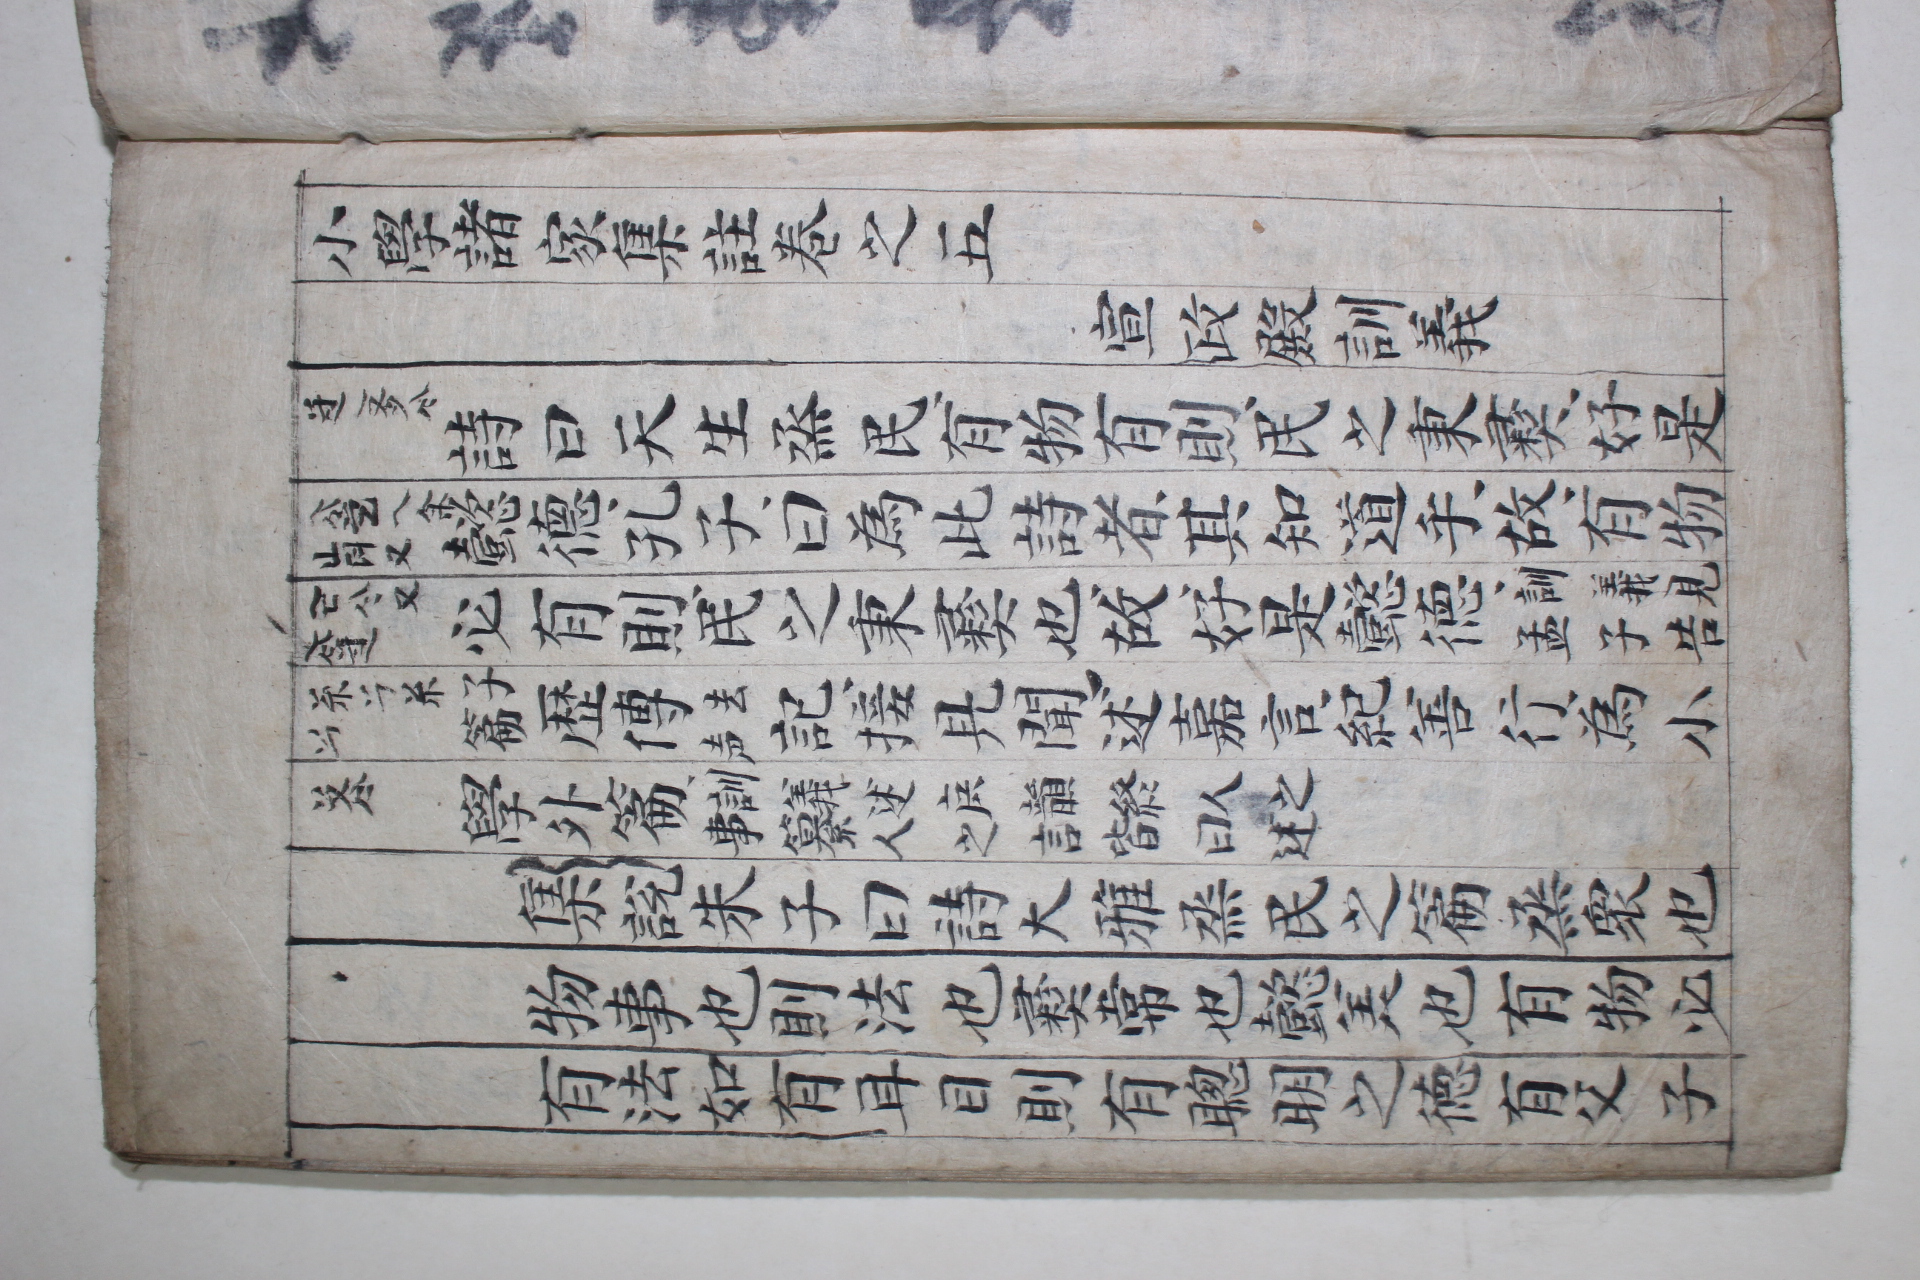 小學諸家集註卷之五
宣政殿訓義
詩曰天生烝民有物有則民之秉彛好是
懿德孔子曰為此詩者其知道乎故有物
必有則民之秉彛也故好是懿德訓義見孟子告
子篇歷傳去声記接見聞述嘉言紀善行為小
學外篇訓義述庆韻終人之事纂人之言皆曰述
集說朱子曰詩大雅烝民之篇烝眾也
物事也則法也彛常也懿美也有物必
有法如有耳目則有聰明之德有父子